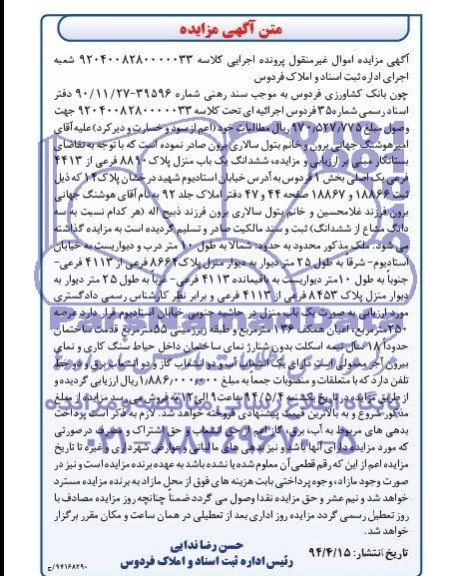 متن آگهی مزایده
آگهی مزایده اموال غیرمنقول پرونده اجرایی کلاسه ۹۲۰۴۰۰۸۲۸۰۰۰۰۰۳۳ شعبه
اجرای اداره ثبت اسناد و املاک فردوس
چون بانک کشاورزی فردوس به موجب سند رهنی شماره ۳۹۵۹۶-۹۰/۱۱/۲۷ دفتر
اسناد رسمی شماره ۳۵ فردوس اجرائیه ای تحت کلاسه ۹۲۰۴۰۰۸۲۸۰۰۰۰۰۳۳ جهت
وصول مبلغ ۹۷۰/۵۲۷/۷۷۵ ریال مطالبات خود (اعم از سود و خسارت و دیرکرد) علیه آقای
امیرهوشنگ جهانی برون و خانم بتول سالاری برون صادر نموده است که با توجه به تقاضای
بستانکار مبنی بر ارزیابی و مزایده، ششدانگ یک باب منزل پلاک ۸۸۹۰ فرعی از ۴۴۱۳
فرعی یک اصلی بخش ۱ فردوس به آدرس خیابان استادیوم شهید درخشان پلاک ۱۴ که ذیل
ثبت ۱۸۸۶۶ و ۱۸۸۶۷ صفحه ۴۴ و ۴۷ دفتر املاک جلد ۹۲ به نام آقای هوشنگ جهانی
برون فرزند غلامحسین و خانم بتول سالاری برون فرزند ذبیح اله (هر کدام نسبت به سه
دانگ مشاع از ششدانگ) ثبت و سند مالکیت صادر و تسلیم گردیده است به مزایده گذاشته
می شود. ملک مذکور محدود به حدود: شمالا به طول ۱۰ متر درب و دیواریست به خیابان
استادیوم- شرقا به طول ۲۵ متر دیوار به دیوار منزل پلاک ۸۶۶۴ فرعی از ۴۱۱۳ فرعی-
جنوبا به طول ۱۰ متر دیواریست به باقیمانده ۴۱۱۳ فرعی- غربا به طول ۲۵ متر دیوار به
دیوار منزل پلاک ۸۴۵۳ فرعی از ۴۱۱۳ فرعی و برابر نظر کارشناس رسمی دادگستری
مورد ارزیابی به صورت یک باب منزل در حاشیه جنوبی خیابان استادیوم قرار دارد. عرصه
۲۵۰ مترمربع، اعیان همکف ۱۳۶ مترمربع و طبقه زیرزمینی ۵۵ مترمربع قدمت ساختمان
حدودا ۱۸ سال نیمه اسکلت بدون شناژ نمای ساختمان داخل حیاط سنگ کاری و نمای
بیرون آجر معمولی است دارای یک انشعاب آب و دو انشعاب گاز و دو انشعاب برق و دو خط
تلفن دارد که با متعلقات و منصوبات جمعا به مبلغ ۱/۸۸۶/۰۰۰/۰۰۰ ریال ارزیابی گردیده و
از طریق مزایده در تاریخ یکشنبه ۹۴/۵/۴ ساعت ۹ الی ۱۲ به فروش می رسد مزایده از مبلغ
مذکور شروع و به بالاترین قیمت پیشنهادی فروخته خواهد شد. لازم به ذکر است پرداخت
بدهی های مربوط به آب، برق، گاز اعم از حق انشعاب و حق اشتراک و مصرف درصورتی
که مورد مزایده دارای آنها باشد و نیز بدهی های مالیاتی و عوارض شهرداری و غیره تا تاریخ
مزایده اعم از این که رقم قطعی آن معلوم شده یا نشده باشد به عهده برنده مزایده است و نیز در
صورت وجود مازاد، وجوه پرداختی بابت هزینه های فوق از محل مازاد به برنده مزایده مسترد
خواهد شد و نیم عشر و حق مزایده نقدا وصول می گردد ضمنا چنانچه روز مزایده مصادف با
روز تعطیل رسمی گردد مزایده روز اداری بعد از تعطیلی در همان ساعت و مکان مقرر برگزار
خواهد شد.
تاریخ انتشار: ۹۴/۴/۱۵
حسن رضا ندایی
رئیس اداره ثبت اسناد و املاک فردوس
۹۴۱۶۸۲۹۰/ح
۰۲۱-۸۸۳۴۹۶۷۰-۵